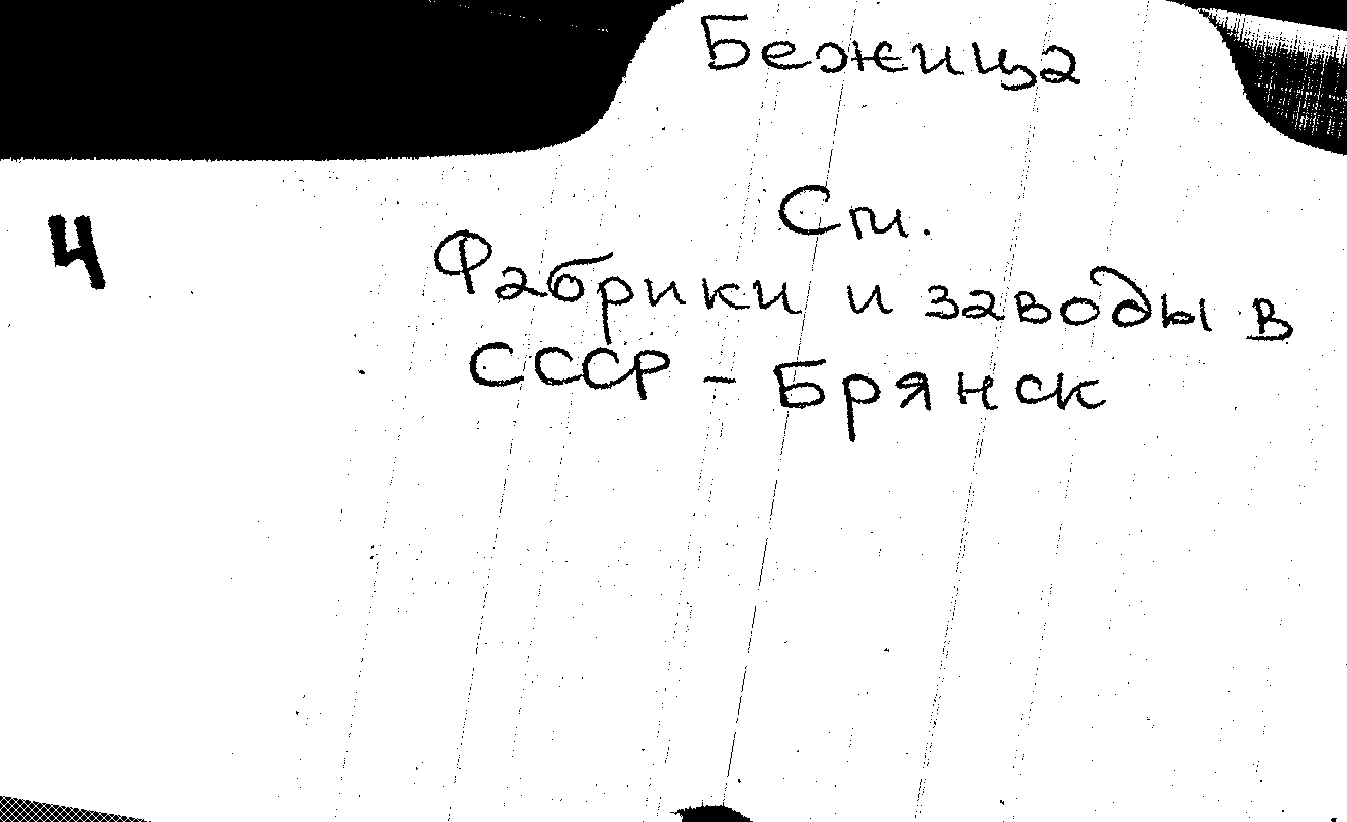 Бежица
См.
4
Фабрики и заводы в
СССР - Брянск